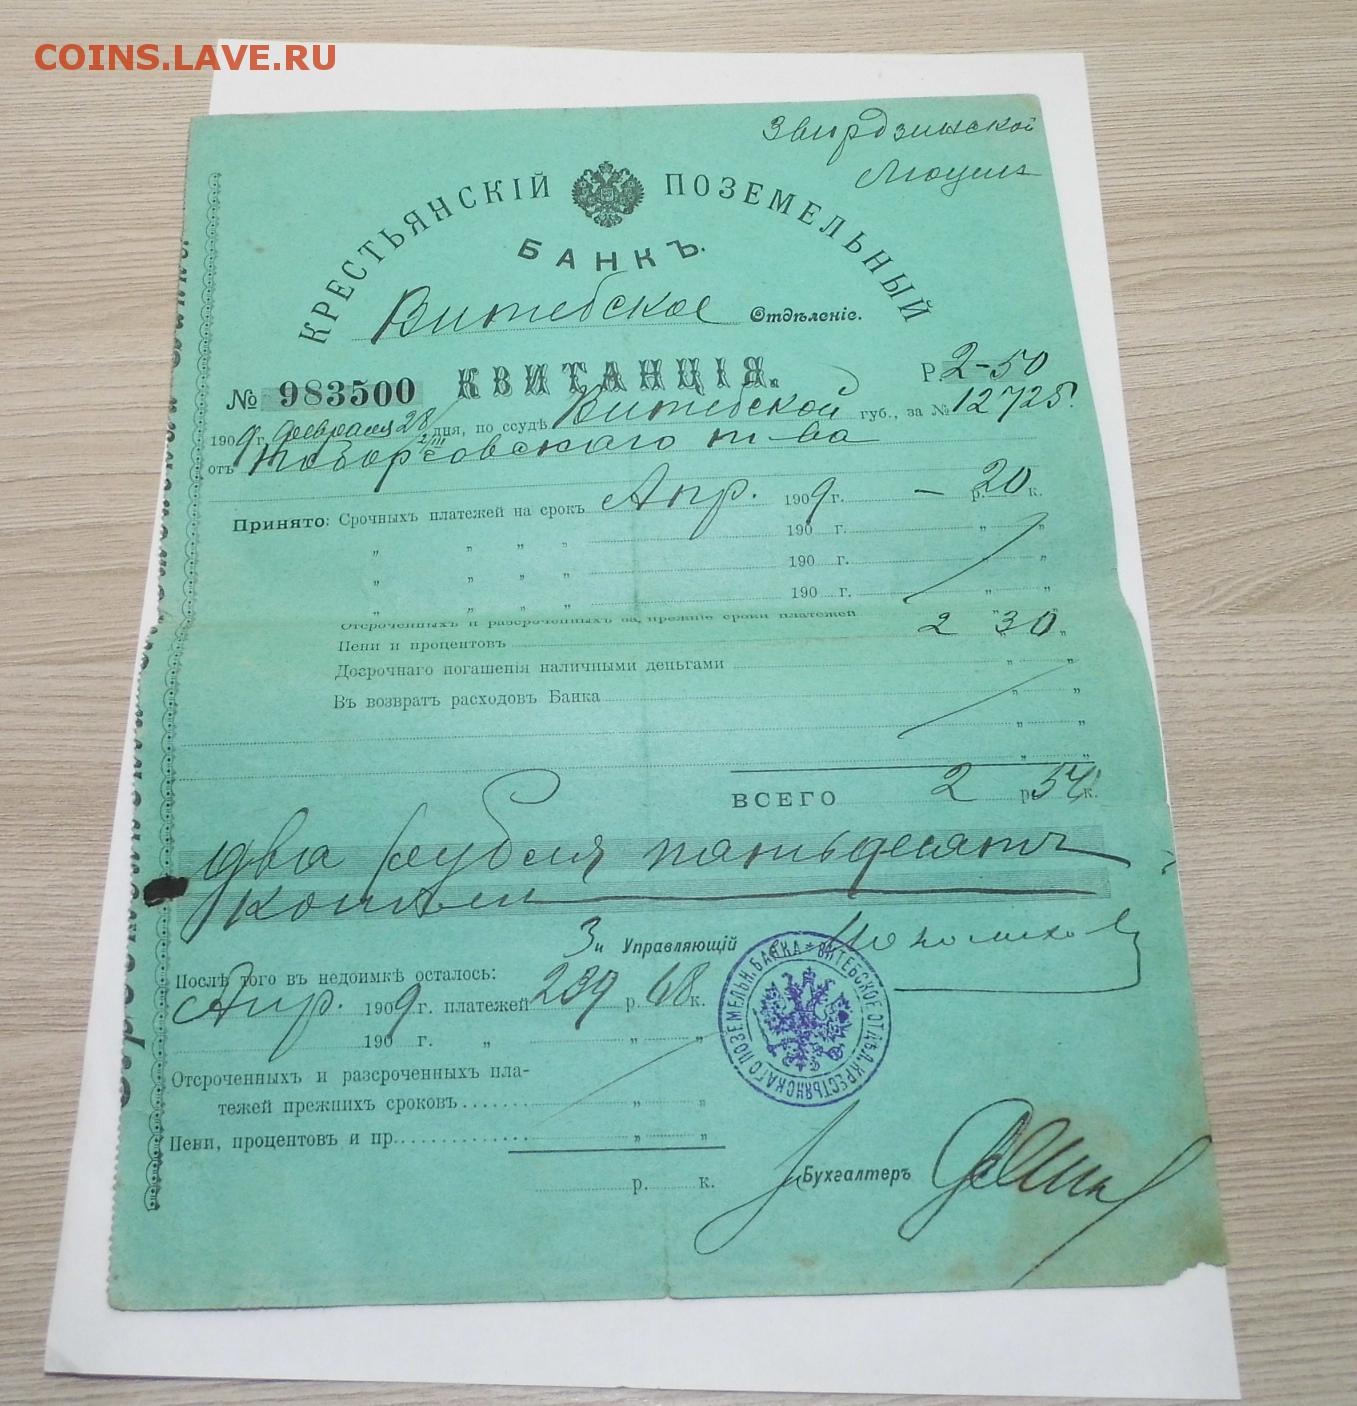 COINS.LAVE.RU
Звирдзинской
КРЕСТЬЯНСКІЙ ПОЗЕМЕЛЬНЫЙ
БАНКЪ.
Витебское Отдѣленіе.
№ 983500 КВИТАНЦІЯ. Р. 2-50
1909 г. февраля 28 дня, по ссудѣ Витебской губ., за № 12725.
отъ т-ва
Принято: Срочныхъ платежей на срокъ Апр. 1909 г. — р. 20 к.
„ „ „ „ 190 г. „ „
„ „ „ „ 190 г. „ „
„ „ „ „ 190 г. „ „
Отсроченныхъ и разсроченныхъ за прежніе сроки платежей „ „
Пени и процентовъ 2 30 „
Досрочнаго погашенія наличными деньгами „ „
Въ возвратъ расходовъ Банка „ „
„ „
„ „
ВСЕГО 2 р. 50 к.
два рубля пятьдесятъ
копѣекъ
Зи Управляющій
Послѣ того въ недоимкѣ осталось:
Апр. 1909 г. платежей 239 р. 68 к.
190 г. „ „ „
Отсроченныхъ и разсроченныхъ пла-
тежей прежнихъ сроковъ....... „ „
Пени, процентовъ и пр.............. „ „
р. к.
Бухгалтеръ
ВИТЕБСКОЕ ОТДѢЛ. КРЕСТЬЯНСКАГО ПОЗЕМЕЛЬН. БАНКА